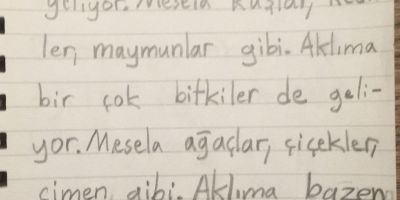 geliyor. Mesela kuşlar,
ler, maymunlar gibi. Aklıma
bir çok bitkiler de geli-
yor. Mesela ağaçlar, çiçekler,
çimen gibi. Aklıma bazen